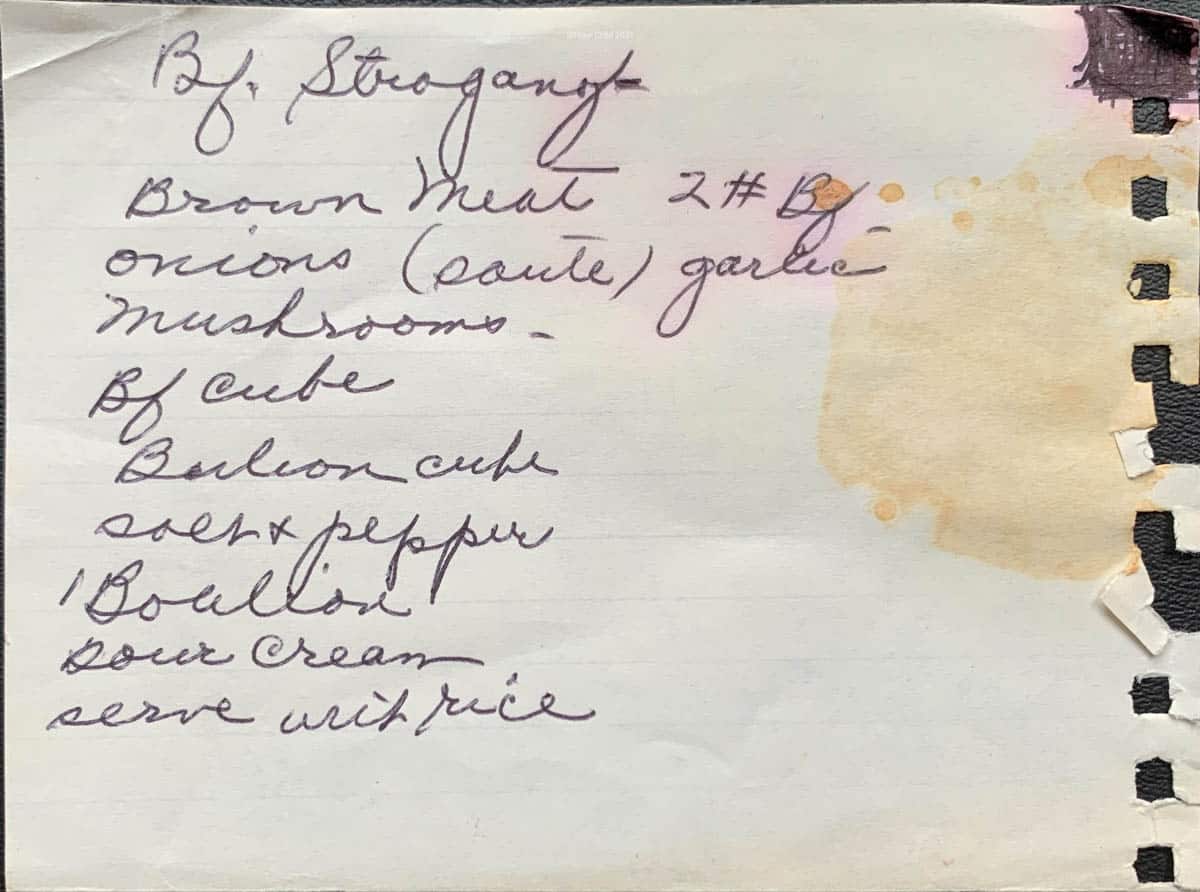 Bf. Stroganof
Brown Meat 2# Bf
onions (saute) garlic
Mushrooms -
Bf cube
Bulion cube
salt & pepper
1 Boullion
sour cream
serve with rice